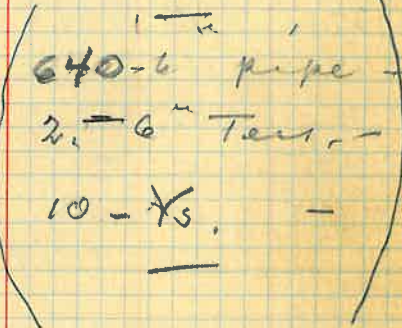 640-6" pipe -
2. - 6" Tees. -
10 - Ys. -